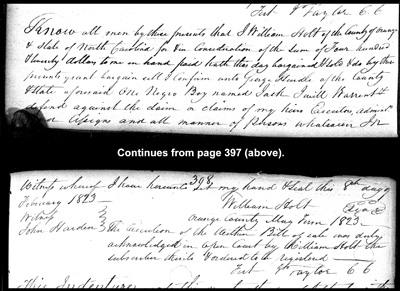 Test J Taylor CC
Know all men by these presents that I William Holt of the County of Orange
& State of North Carolina for & in Consideration of the Sum of Four hundred
& twenty dollars to me in hand paid hath this day bargained & Sold & do by these
presents grant bargain sell & Confirm unto George Hurdle of the County
& State aforesaid One Negro Boy named Jack I will Warrent &
defend against the claim or claims of my heirs Executors, admin
or Assigns and all manner of Persons whatsoever In
Continues from page 397 (above).
398
Witness whereof I have hereunto set my hand & Seal this 8th day of
February 1823 William Holt Seal
Witness Orange County May Term 1823
John Harden The Execution of the within Bill of sale was duly
acknowledged in open Court by William Holt the
subscriber thereto & ordered to be registered
Test J Taylor CC
This Indenture